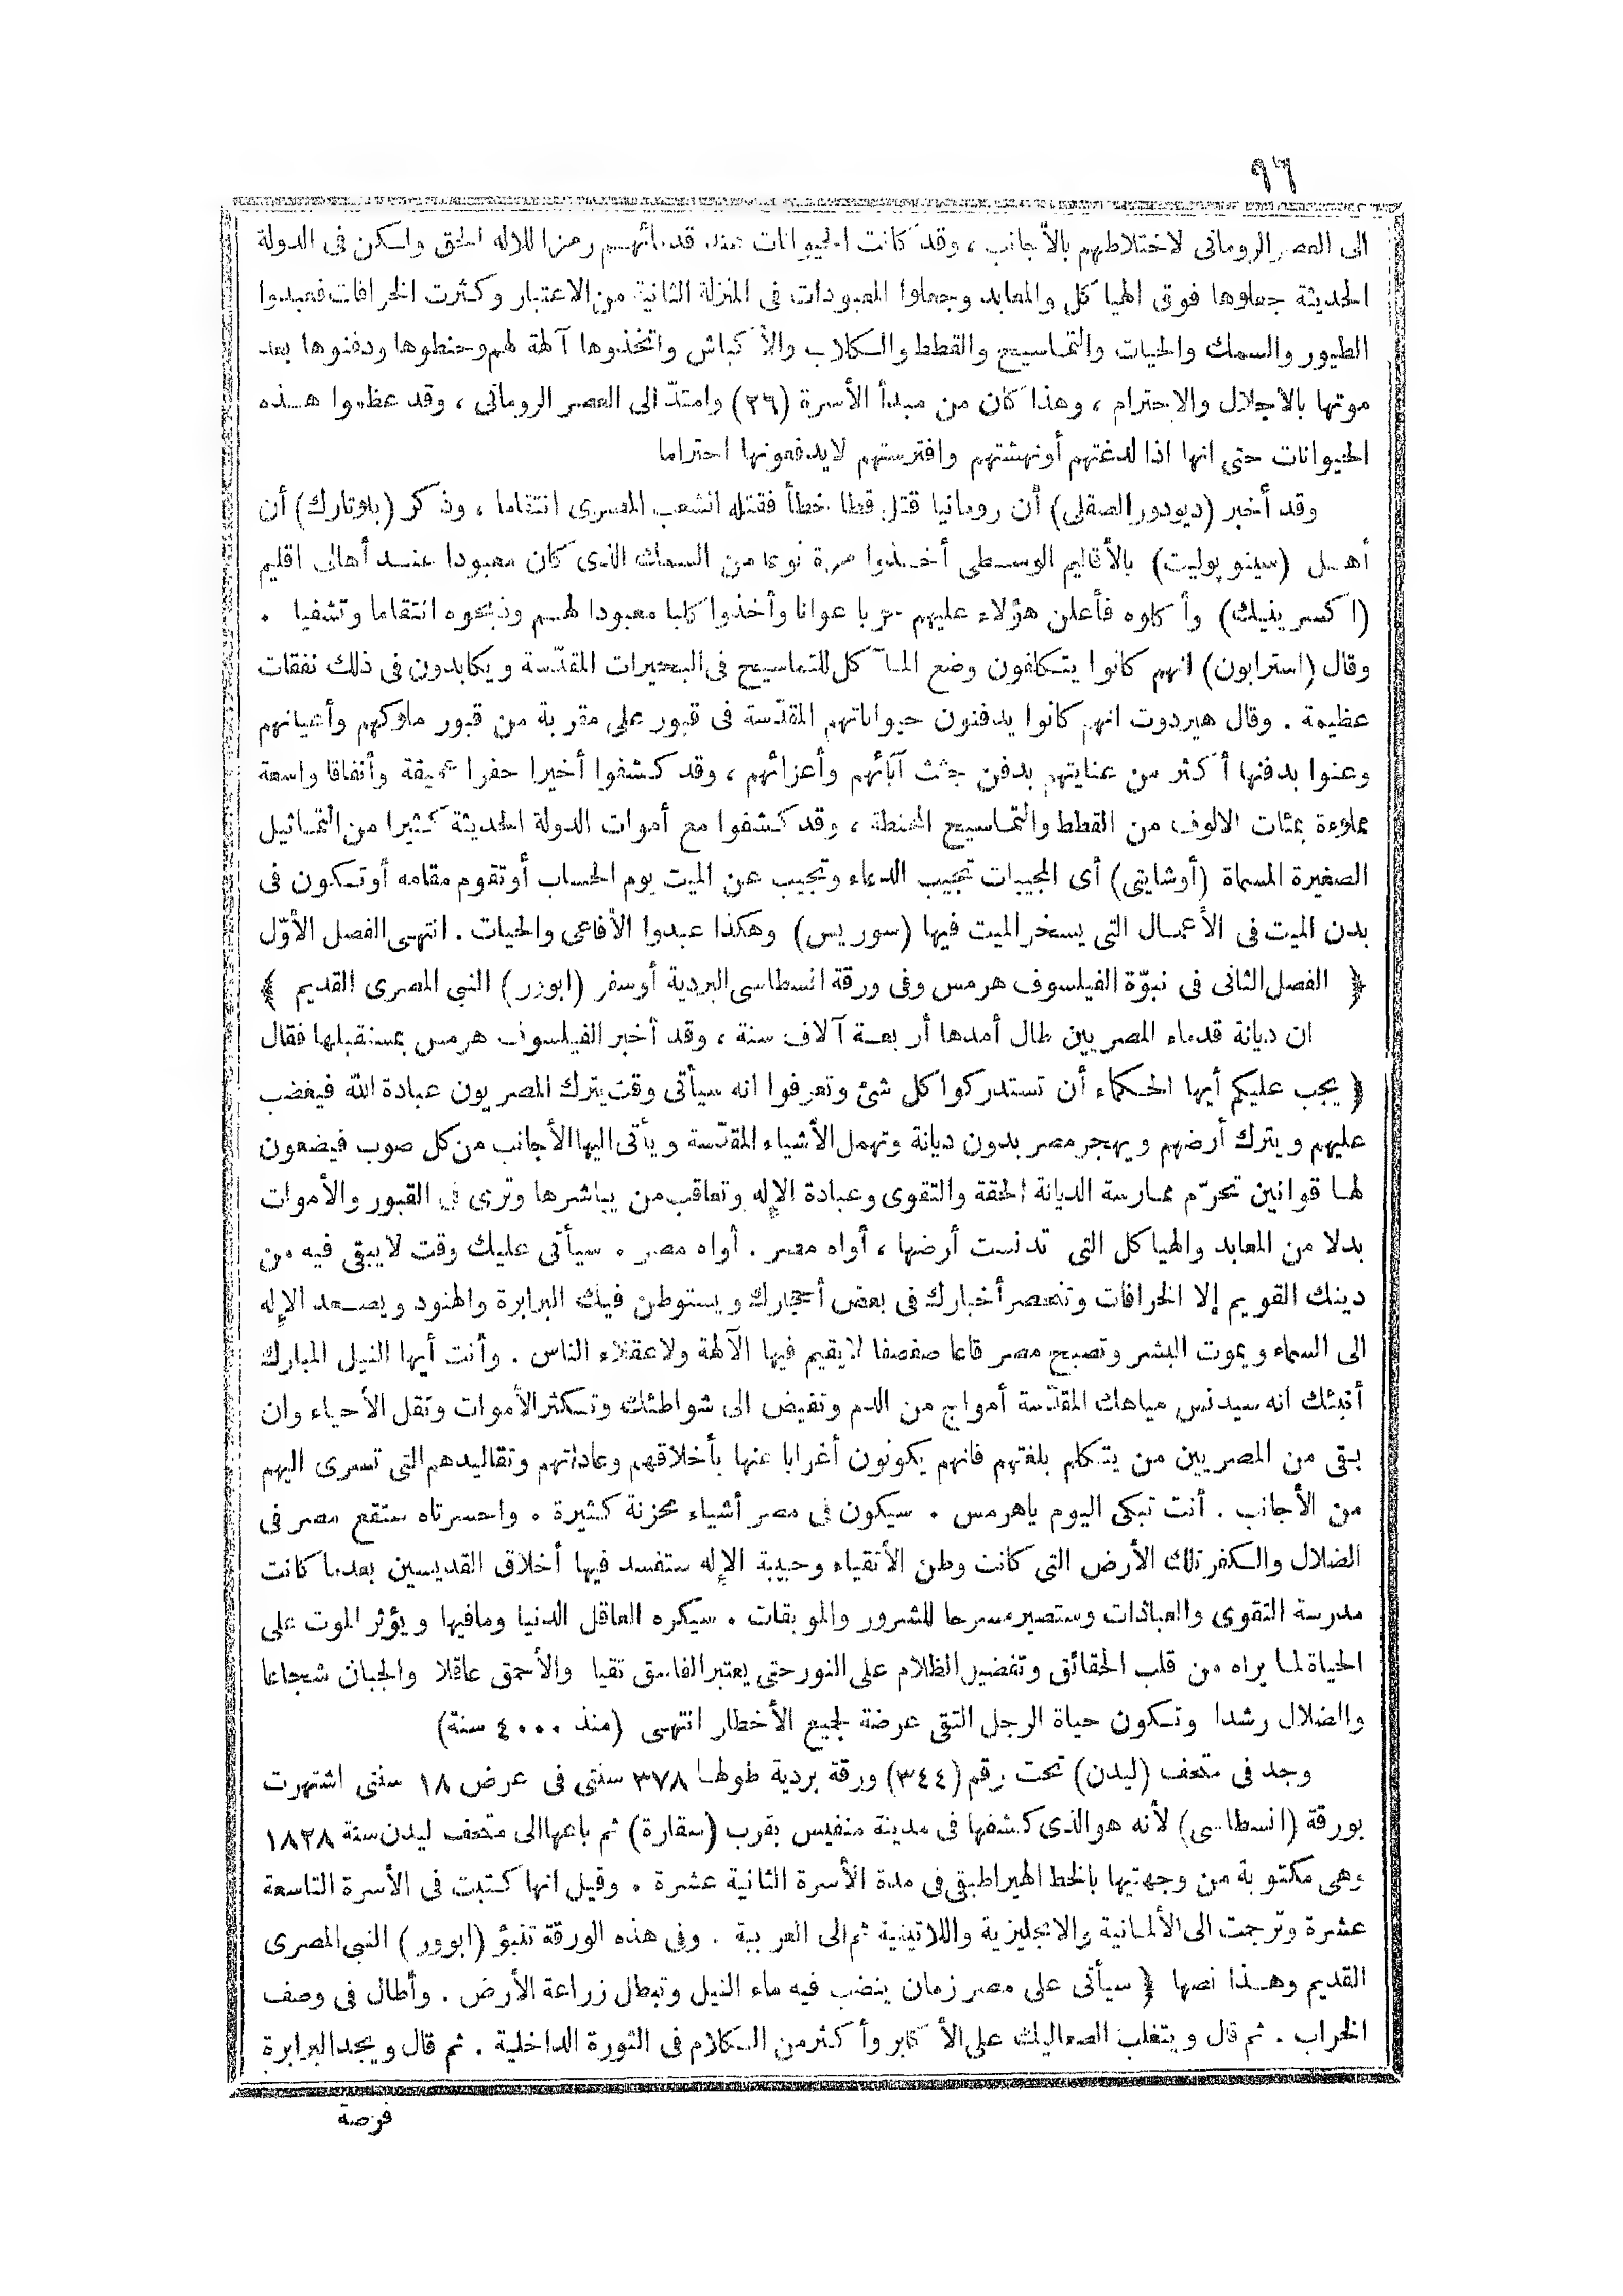 ٩٦
الى العصر الرومانى لاختلاطهم بالأجانب ، وقد كانت الحيوانات عند قدمائهم رمزا للاله الحق ولكن فى الدولة
الحديثة جعلوها فوق الهياكل والمعابد وجعلوا المعبودات فى المنزلة الثانية من الاعتبار وكثرت الخرافات فعبدوا
الطيور والسمك والحيات والتماسيح والقطط والكلاب والأكباش واتخذوها آلهة لهم وحنطوها ودفنوها بعد
موتها بالاجلال والاحترام ، وهذا كان من مبدأ الأسرة (٢٦) وامتدّ الى العصر الرومانى ، وقد عظموا هذه
الحيوانات حتى انها اذا لدغتهم أونهشتهم وافترستهم لايدفعونها احتراما
وقد أخبر (ديودور الصقلى) أن رومانيا قتل قطا خطأ فقتله الشعب المصرى انتقاما ، وذكر (بلوتارك) أن
أهل (سينو بوليت) بالأقاليم الوسطى أخذوا مرة نوعا من السمك الذى كان معبودا عند أهالى اقليم
(اكسرينيك) وأكلوه فأعلن هؤلاء عليهم حربا عوانا وأخذوا كلبا معبودا لهم وذبحوه انتقاما وتشفيا .
وقال (استرابون) انهم كانوا يتكلفون وضع المآكل للتماسيح فى البحيرات المقدّسة ويكابدون فى ذلك نفقات
عظيمة . وقال هيردوت انهم كانوا يدفنون حيواناتهم المقدّسة فى قبور على مقربة من قبور ملوكهم وأعيانهم
وعنوا بدفنها أكثر من عنايتهم بدفن جثث آبائهم وأعزائهم ، وقد كشفوا أخيرا حفرا عميقة وأنفاقا واسعة
مملوءة بمئات الالوف من القطط والتماسيح المحنطة ، وقد كشفوا مع أموات الدولة الحديثة كثيرا من التماثيل
الصغيرة المسماة (أوشابتى) أى المجيبات تجيب الدعاء وتجيب عن الميت يوم الحساب أوتقوم مقامه أوتكون فى
بدن الميت فى الأعمال التى يسخر الميت فيها (سوريس) وهكذا عبدوا الأفاعى والحيات . انتهى الفصل الأوّل
﴿ الفصل الثانى فى نبوّة الفيلسوف هرمس وفى ورقة انسطاسى البردية أوسفر (ابوزر) النبي المصرى القديم ﴾
ان ديانة قدماء المصريين طال أمدها أربعة آلاف سنة ، وقد أخبر الفيلسوف هرمس بمستقبلها فقال
﴿ يجب عليكم أيها الحكماء أن تستدركوا كل شئ وتعرفوا انه سيأتى وقت يترك المصريون عبادة الله فيغضب
عليهم ويترك أرضهم ويهجر مصر بدون ديانة وتهمل الأشياء المقدّسة ويأتى اليها الأجانب من كل صوب فيضعون
لها قوانين تحرّم ممارسة الديانة الحقة والتقوى وعبادة الإله وتعاقب من يباشرها وترى فى القبور والأموات
بدلا من المعابد والهياكل التى تدنست أرضها ، أواه مصر . أواه مصر . سيأتى عليك وقت لا يبقى فيه من
دينك القويم إلا الخرافات وتنحصر أخبارك فى بعض أحجارك ويستوطن فيك البرابرة والهنود ويصعد الإله
الى السماء ويموت البشر وتصبح مصر قاعا صفصفا لا يقيم فيها الآلهة ولا عقلاء الناس . وأنت أيها النيل المبارك
أنبئك انه سيدنس مياهك المقدّسة أمواج من الدم وتفيض الى شواطئك وتكثر الأموات وتقل الأحياء وان
بقى من المصريين من يتكلم بلغتهم فانهم يكونون أغرابا عنها بأخلاقهم وعاداتهم وتقاليدهم التى تسرى اليهم
من الأجانب . أنت تبكى اليوم ياهرمس . سيكون فى مصر أشياء محزنة كثيرة . واحسرتاه ستقع مصر فى
الضلال والكفر تلك الأرض التى كانت وطن الأتقياء وحبيبة الإله ستفسد فيها أخلاق القديسين بعدما كانت
مدرسة التقوى والعبادات وستصير مسرحا للشرور والموبقات . سيكره العاقل الدنيا ومافيها ويؤثر الموت على
الحياة لما يراه من قلب الحقائق وتفضيل الظلام على النور حتى يعتبر الفاسق تقيا والأحمق عاقلا والجبان شجاعا
والضلال رشدا وتكون حياة الرجل التقى عرضة لجميع الأخطار انتهى (منذ ٤٠٠٠ سنة)
وجد فى متحف (ليدن) تحت رقم (٣٤٤) ورقة بردية طولها ٣٧٨ سنتى فى عرض ١٨ سنتى اشتهرت
بورقة (انسطاسى) لأنه هو الذى كشفها فى مدينة منفيس بقرب (سقارة) ثم باعها الى متحف ليدن سنة ١٨٢٨
وهى مكتوبة من وجهتيها بالخط الهيراطيقى فى مدة الأسرة الثانية عشرة . وقيل انها كتبت فى الأسرة التاسعة
عشرة وترجمت الى الألمانية والانجليزية واللاتينية ثم الى العربية . وفى هذه الورقة تنبؤ (ابوور) النبى المصرى
القديم وهذا نصها ﴿ سيأتى على مصر زمان ينضب فيه ماء النيل وتبطل زراعة الأرض . وأطال فى وصف
الخراب . ثم قال ويتغلب الصعاليك على الأكابر وأكثر من الكلام فى الثورة الداخلية . ثم قال ويجد البرابرة
فرصة